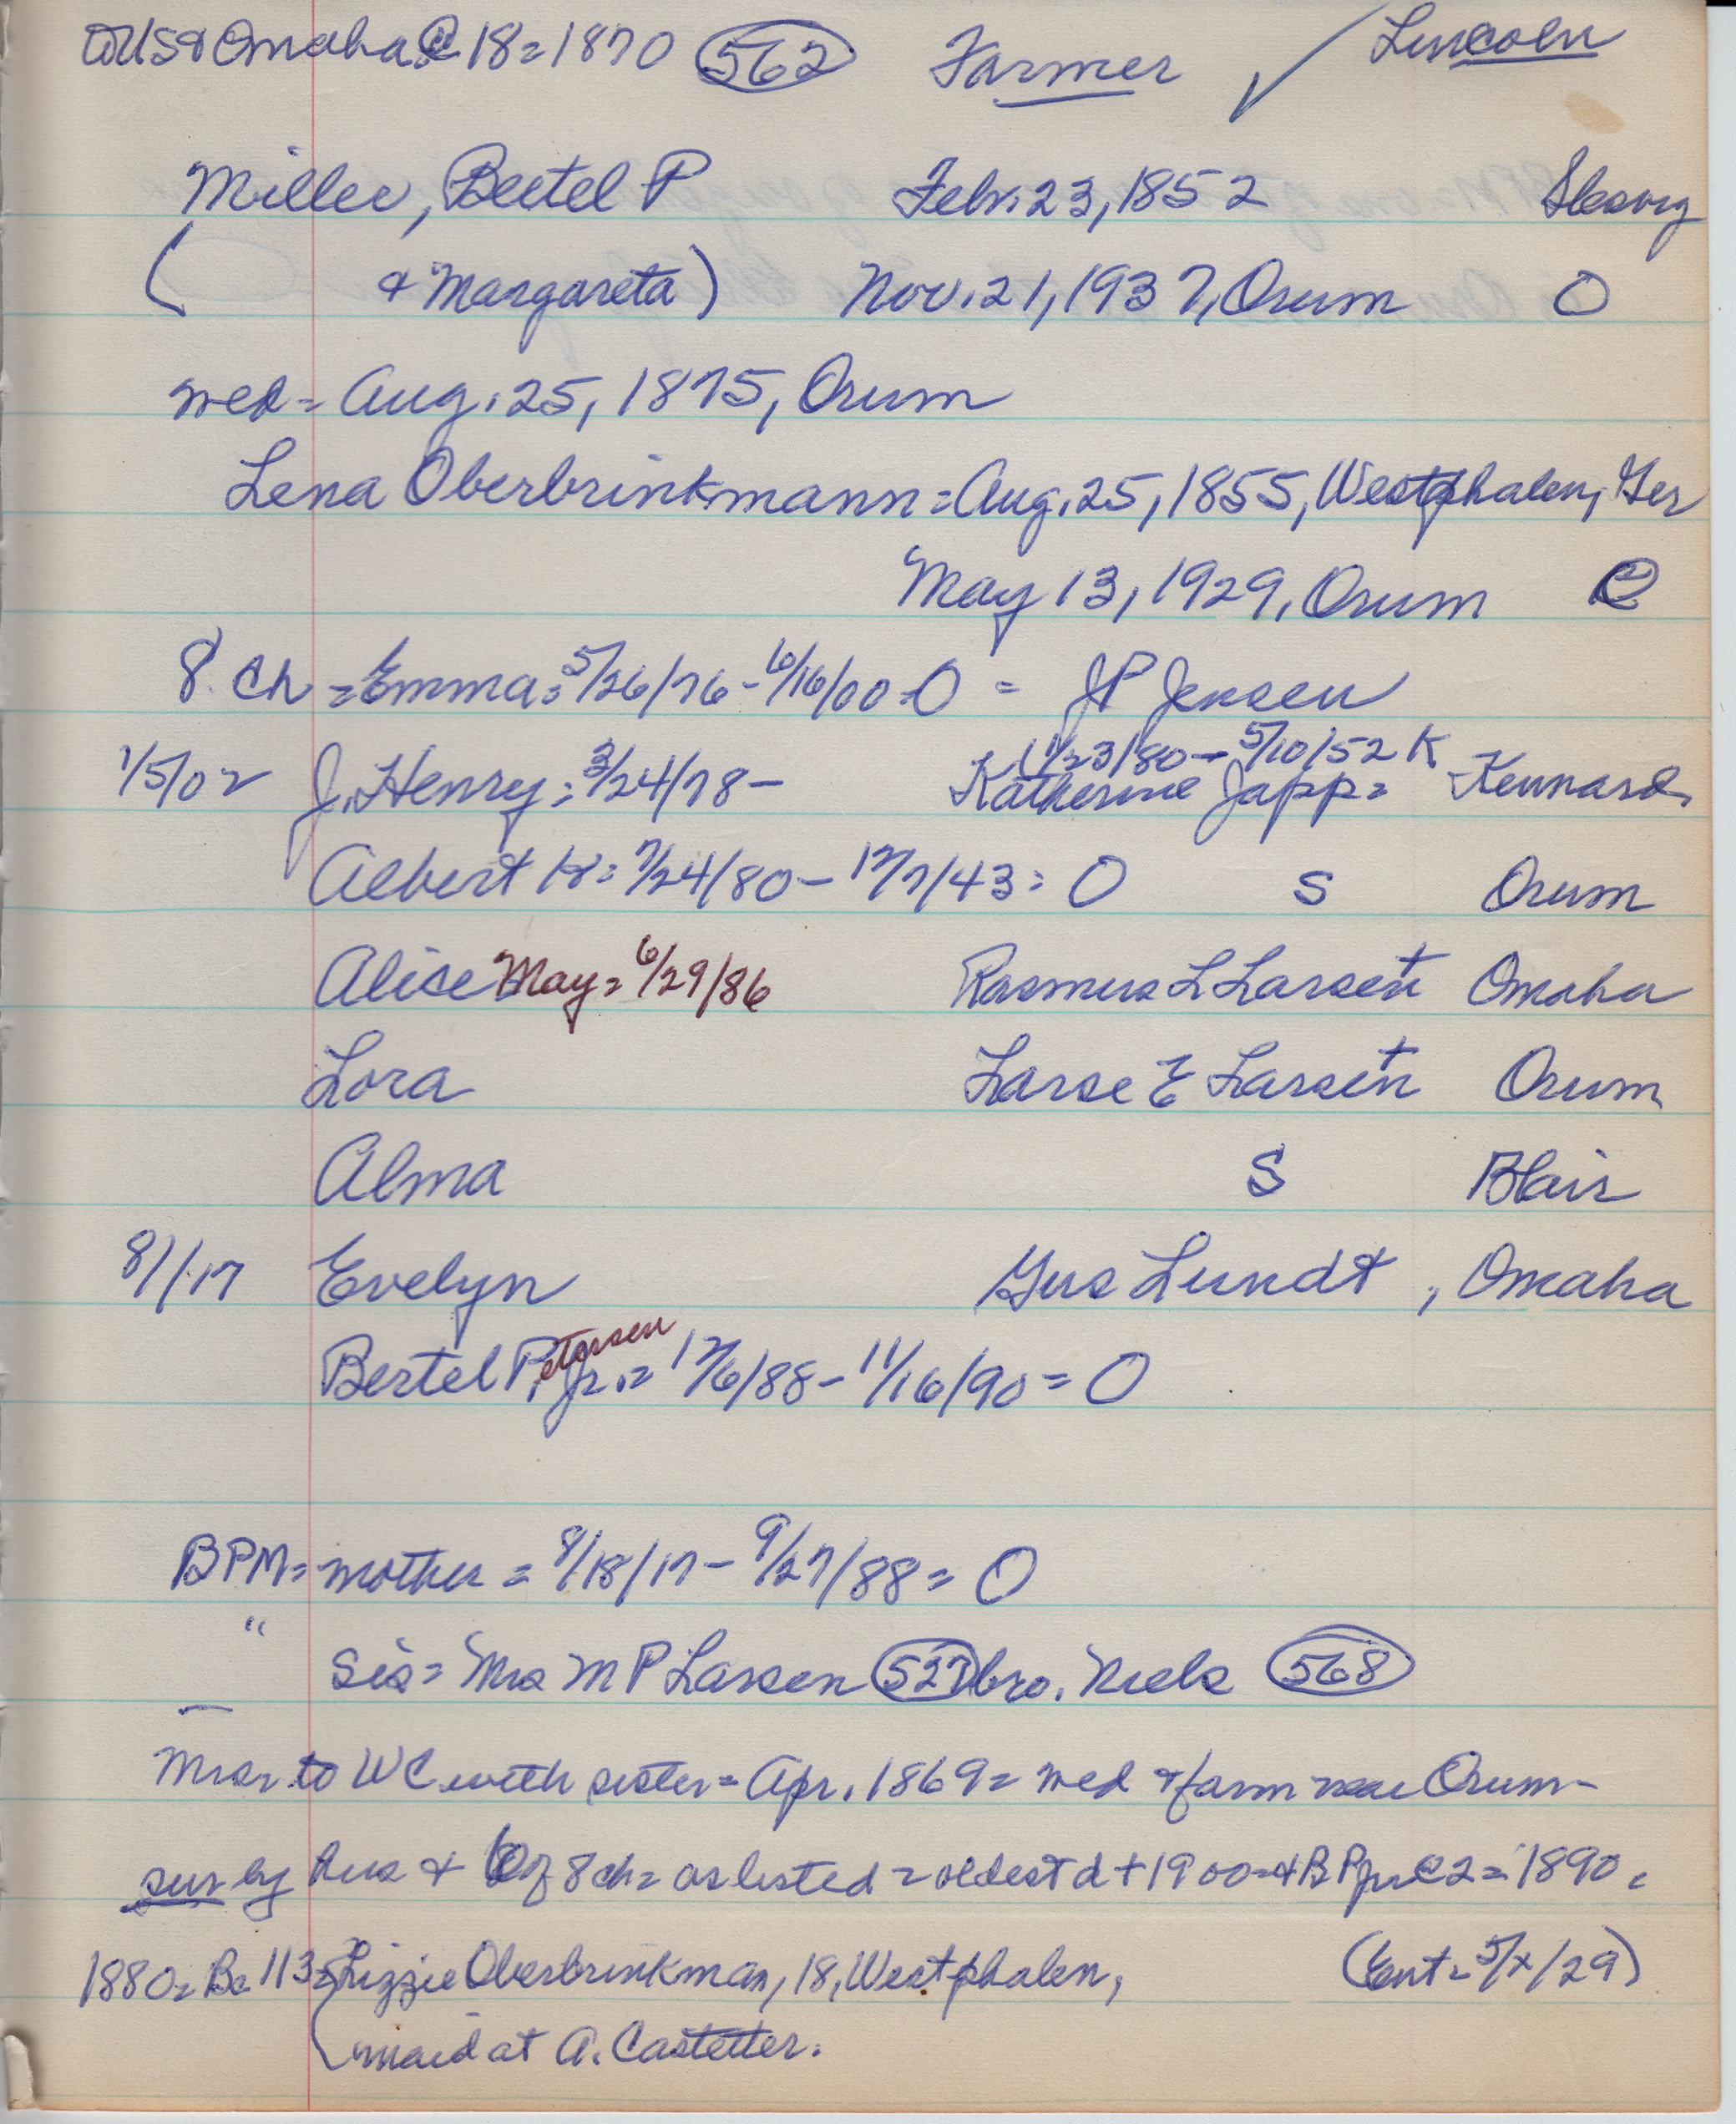 to US & Omaha @ 18 = 1870 (562) Farmer ✓ Lincoln
Miller, Bertel P Febr. 23, 1852 Slesvig
( & Margareta) Nov. 21, 1937, Orum O
wed = Aug. 25, 1875, Orum
Lena Oberbrinkmann = Aug. 25, 1855, Westphalen, Ger
May 13, 1929, Orum
8 Ch = Emma = 5/26/76 - 6/16/00 - O = JP Jensen
(1/23/80 - 5/10/52 K
1/5/02 J. Henry = 3/24/78 - Katherine Japp = Kennard,
Albert H = 7/24/80 - 12/7/43 = O S Orum
Alice May = 6/29/86 Rasmus L Larsen + Omaha
Lora Larse E Larsen + Orum
Alma S Blair
8/1/17 Evelyn Gus Lundt, Omaha
Bertel Petersen Jr. = 12/6/88 - 11/16/90 = O
BPM = mother = 8/18/17 - 9/27/88 = O
" sis = Mrs M P Larsen (527) bro. Niels (568)
Mrs = to WC with sister = Apr. 1869 = wed & farm near Orum -
sur by hus & 6 of 8 ch = as listed = oldest d + 1900 = & B P Jr @ 2 = 1890.
1880 = Bc 113 = Lizzie Oberbrinkman, 18, Westphalen, (Ent = 5/x/29)
maid at A. Castetter.